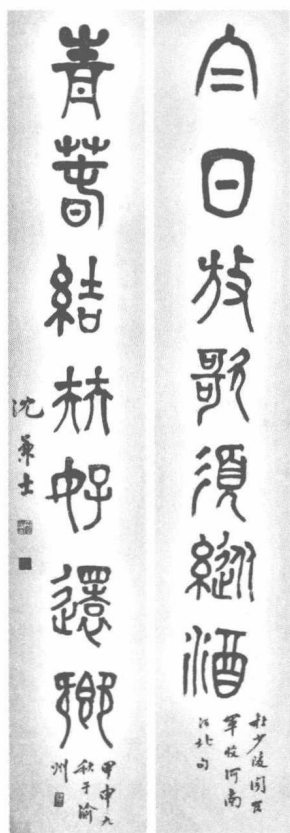 白日放歌須縱酒
杜少陵聞官
軍收河南
河北句
青春結㚘好還鄉
甲申九
秋于渝
州
沈兼士